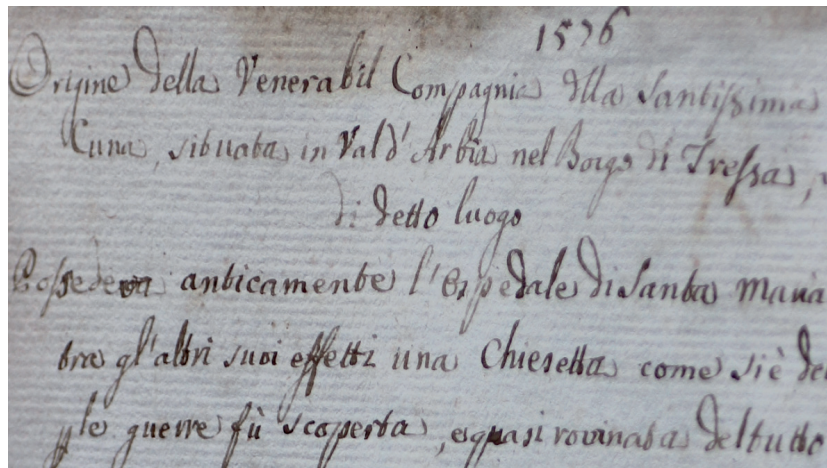 1576
Origine della Venerabil Compagnia dlla Santissima
Cuna, situata in Val d'Arbia nel Borgo di Tressa,
di detto luogo
Possedeva anticamente l'Ospedale di Santa Maria
tra gl'altri suoi effetti una Chiesetta come si è
ple guerre fù scoperta, e quasi rovinata del tutto